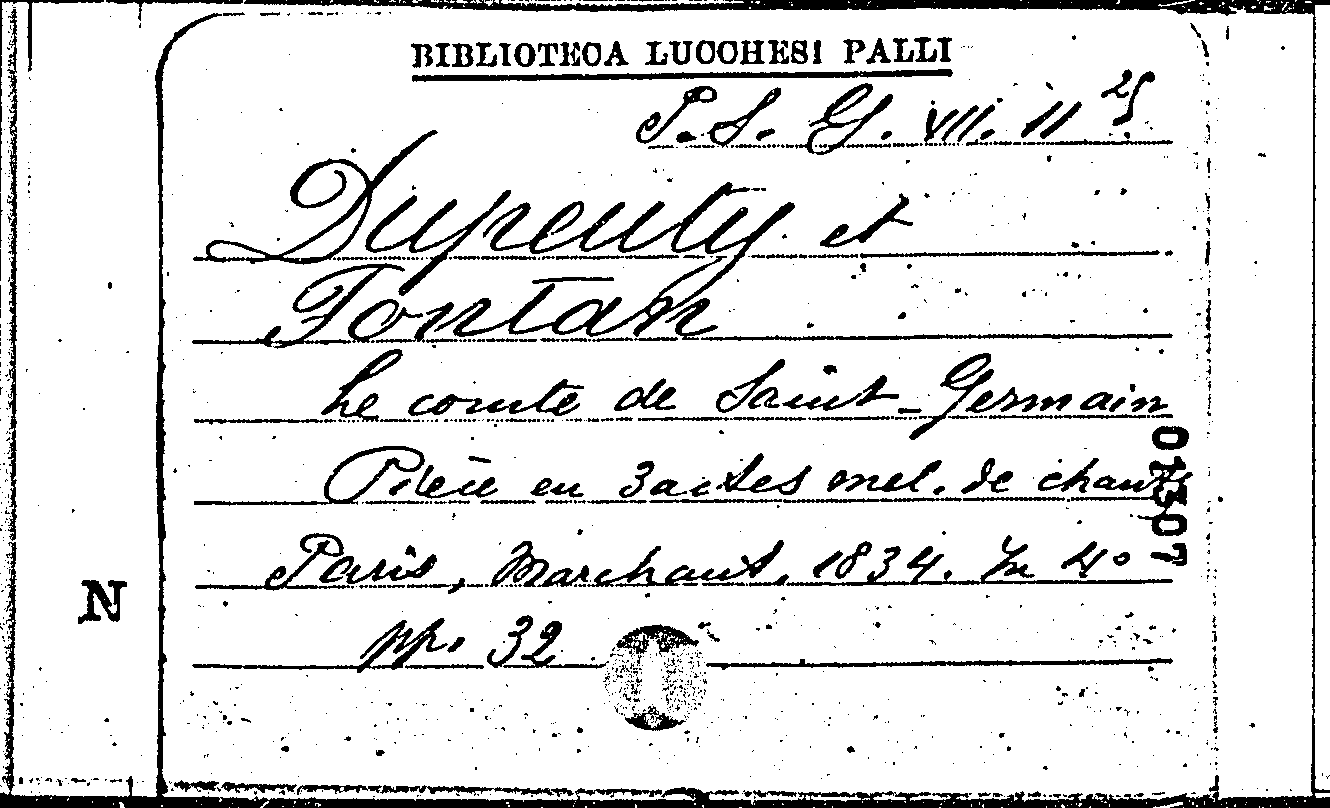 BIBLIOTECA LUCCHESI PALLI
P. S. G. VII. 11 25
Dupeuty et
Fontan
Le comte de Saint-Germain
Pièce en 3 actes mel. de chants
01307
Paris, Marchant, 1834. In 4º
N
pp. 32